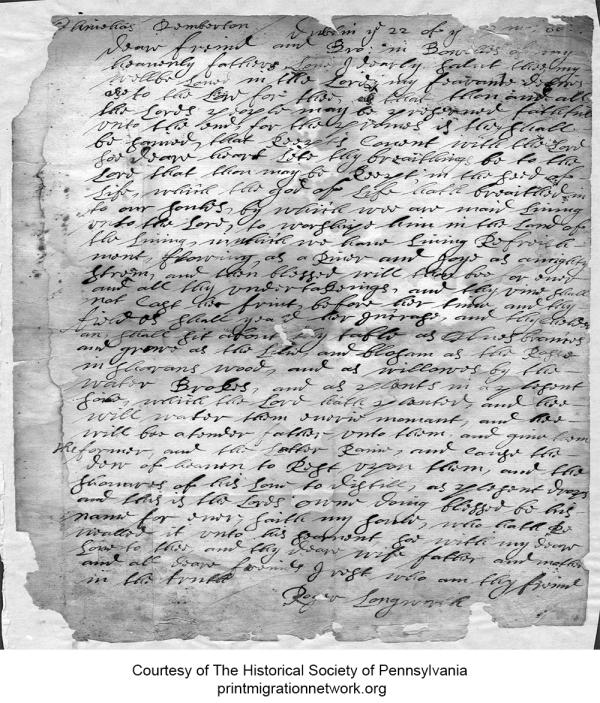 Phinehas Pemberton Dublin ye 22 of ye
Deare frend and Bro: in Bowells of my
heavenly fathers Love I dearly salut thee my
wellbeloved in the Lord, my fearvant desires
is to the Lord for thee, that thou and all
the Lords people may be preserved faithfull
unto the end, for the promes is they shall
be saved, that keep Covent with the Lord
soe deare heart Lete thy breathings be to the
Lord that thou may be keept in the seed of
Life, which the god of Life hath breathed in
to our soules, by which wee are maid Living
unto the Lord, to worshipe him in the Land of
the Living, in which we have Living Refresh
ment, flowing as a River and Joye as a mighty
streem, and then blessed will thou bee for ever
and all thy undertakeings, and thy vine shall
not Cast her fruit before her time and thy
field shall yeald her Increase, and thy children
shall sit about thy table as Olive branches
and growe as the Lilie and blosam as the Rose
in sharans wood, and as willowes by the
water Brokes, and as plents in a plesent
soile, which the Lord hath planted, and hee
will water them everie momant, and hee
will bee a tender father unto them, and give them
the former, and the Latter Raine, and cause the
dew of heaven to Rest upon them, and the
showres of his Love to distill, as plesent drops
and this is the Lords owne doing blessed be his
name for ever saith my soule, who hath Re
vealled it unto his servant soe with my deare
Love to thee and thy deare wife father and mother
and all deare freinds I rest who am thy frend
in the truth
Roger Longworth
Courtesy of The Historical Society of Pennsylvania
printmigrationnetwork.org